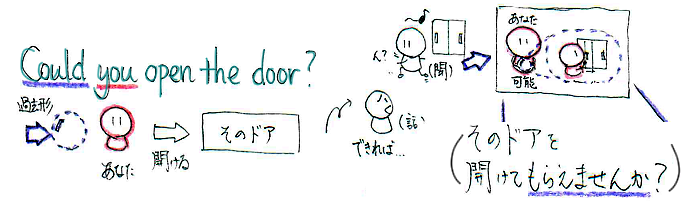 Could you open the door?
過去形
あなた
開ける
そのドア
ん?
(聞)
できれば…
(話)
あなた
可能
(そのドアを
開けてもらえませんか?)